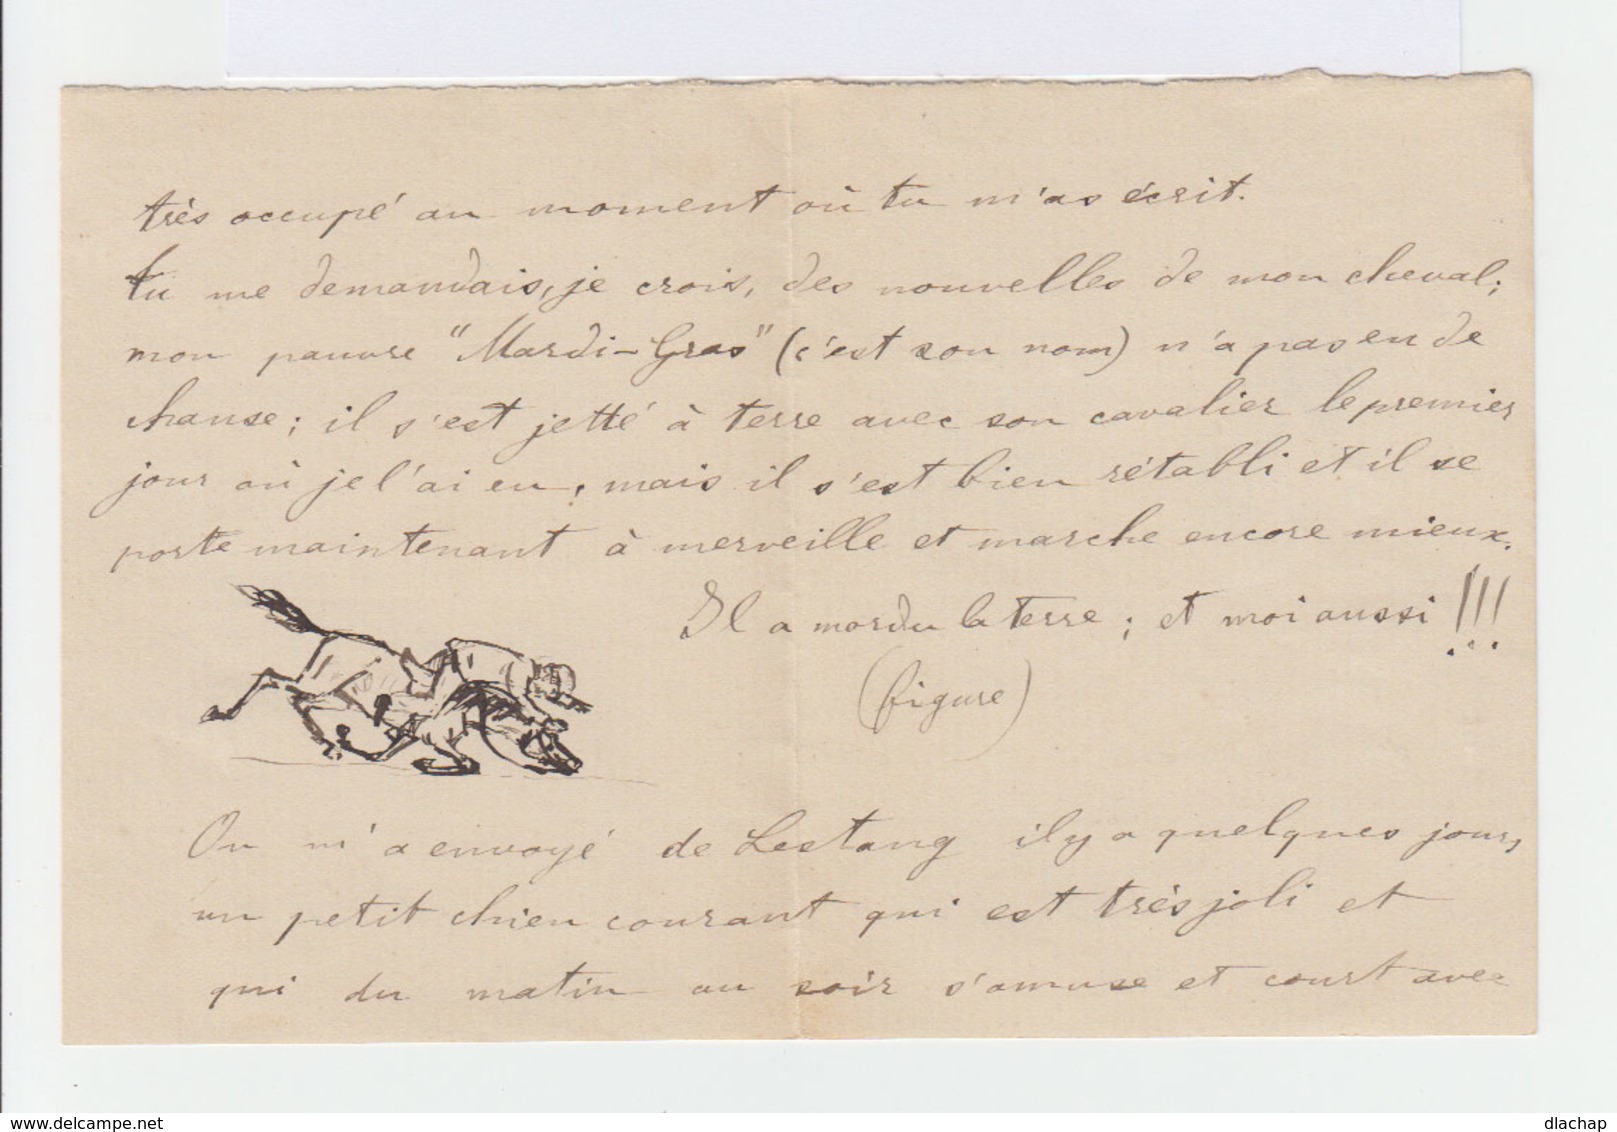 très occupé au moment où tu m'as écrit.
tu me demandais, je crois, des nouvelles de mon cheval;
mon pauvre "Mardi-Gras" (c'est son nom) n'a pas eu de
chanse; il s'est jetté à terre avec son cavalier le premier
jour où je l'ai eu, mais il s'est bien rétabli et il se
porte maintenant à merveille et marche encore mieux.
Il a mordu la terre; et moi aussi!!!
(figure)
On m'a envoyé de Lestang il y a quelques jours,
un petit chien courant qui est très joli et
qui du matin au soir s'amuse et court avec
delcampe.net
dlachap